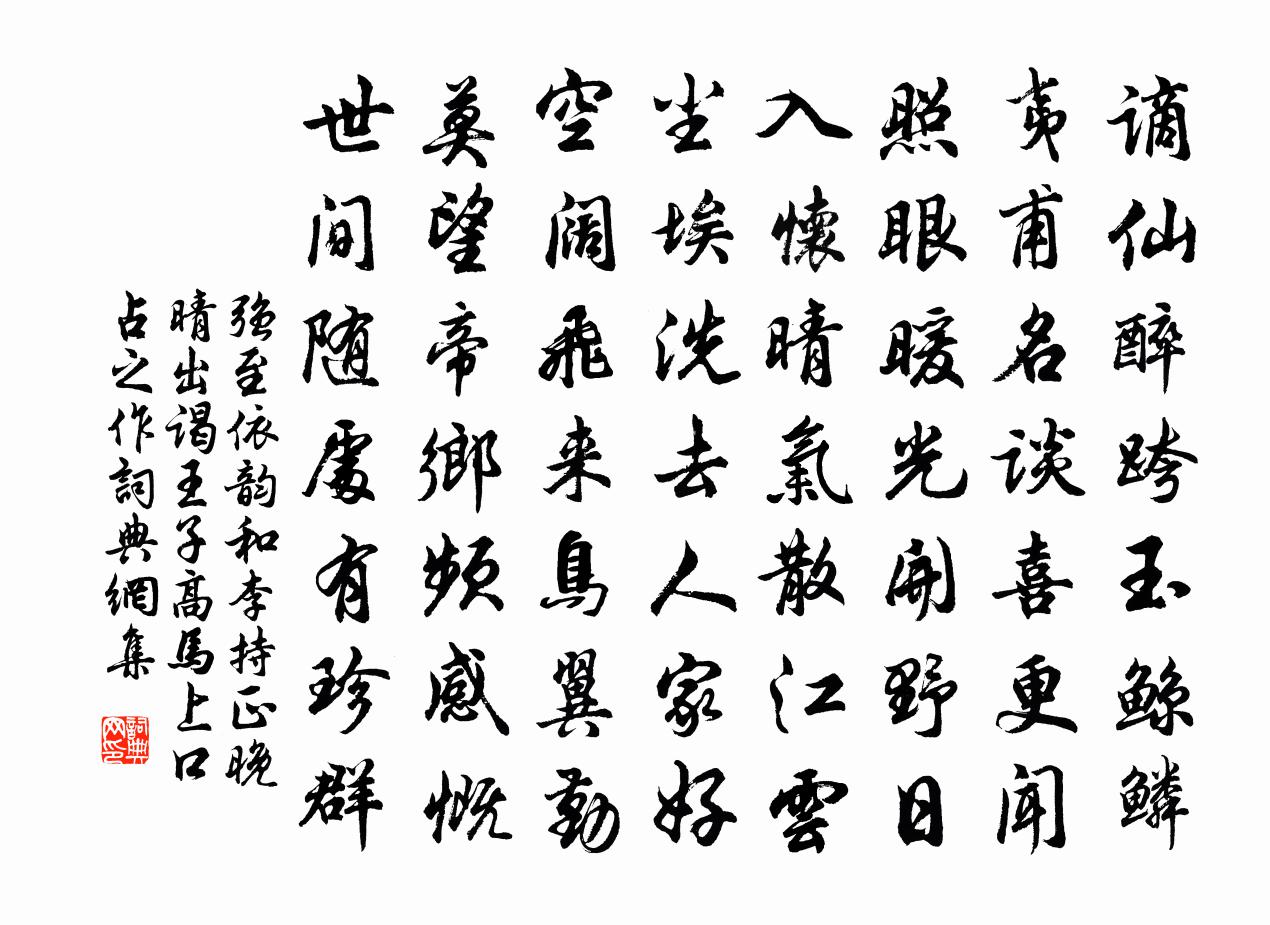 谪仙醉跨玉鲸鳞
夷甫名谈喜更闻
照眼暖光开野日
入怀晴氣散江雲
尘埃洗去人家好
空阔飛来鳥翼勤
莫望帝鄉频感慨
世间随處有珍群
强至依韵和李持正晚
晴出谒王子高馬上口
占之作詞典網集
詞典网印